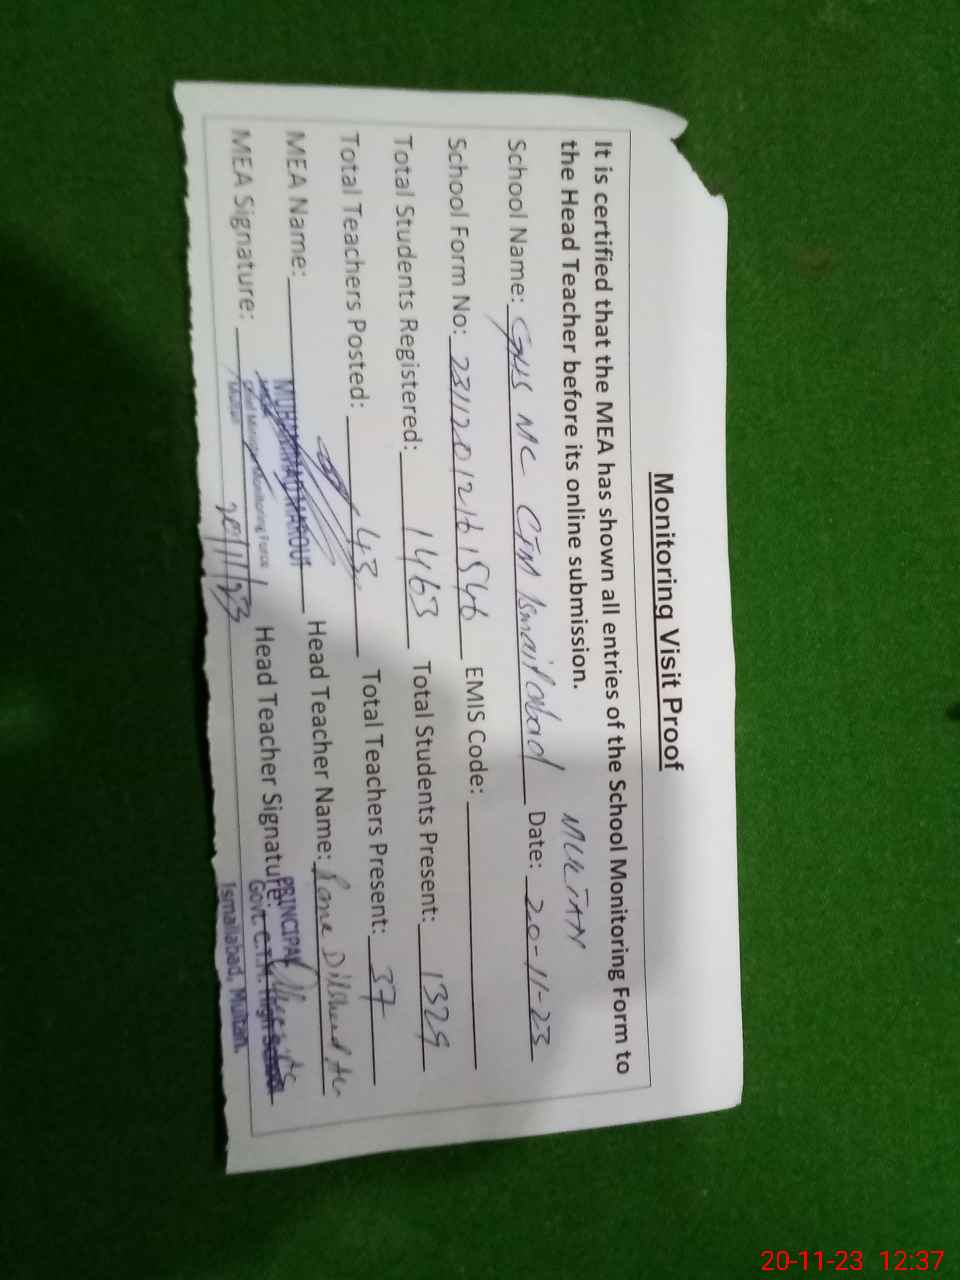 Monitoring Visit Proof
It is certified that the MEA has shown all entries of the School Monitoring Form to
the Head Teacher before its online submission.
MULTAN
School Name: GHS MC CTM Ismailabad Date: 20-11-23
School Form No: EMIS Code:
Total Students Registered: 1463 Total Students Present: 1329
Total Teachers Posted: 43 Total Teachers Present: 37
MEA Name: MUHAMMAD MAROUF Head Teacher Name: Rana Dilshad
MEA Signature: Monitoring Force 20/11/23 Head Teacher Signature: PRINCIPAL
Govt. C.T.M. High School
Ismailabad, Multan.
20-11-23 12:37